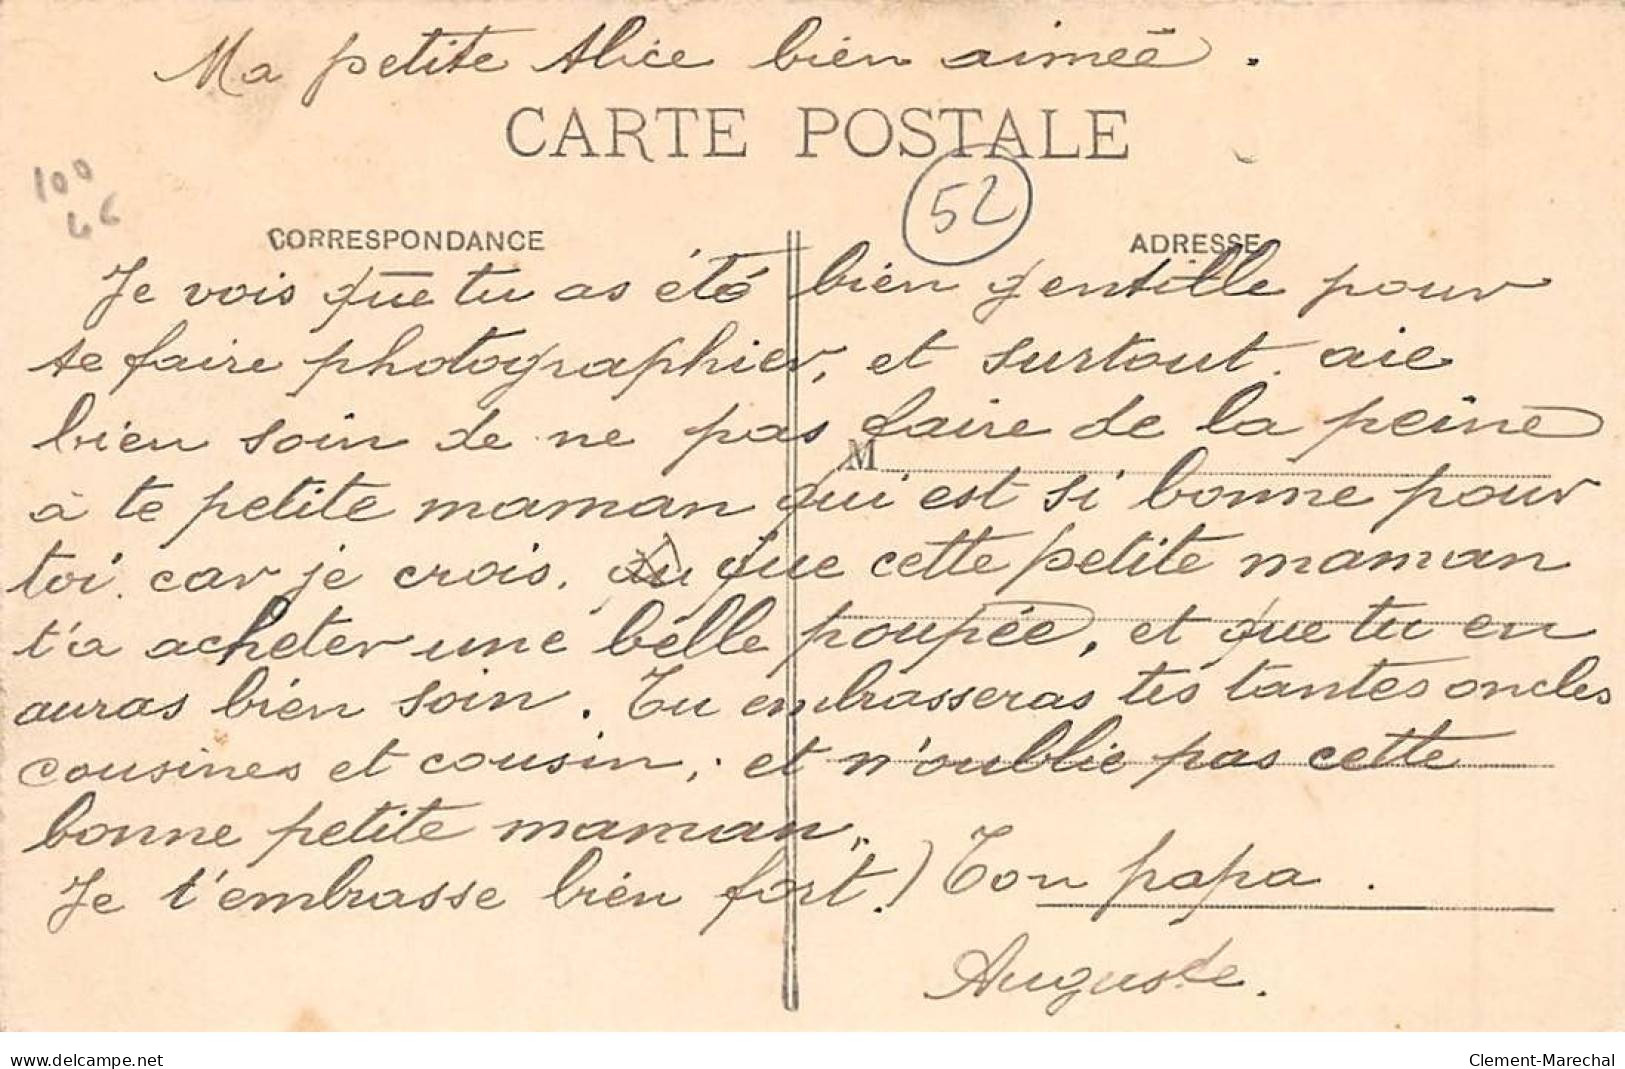 Ma petite Alice bien aimée.
CARTE POSTALE
100
52
CORRESPONDANCE
ADRESSE
Je vois que tu as été bien gentille pour
te faire photographier, et surtout. aie
bien soin de ne pas faire de la peine
M
à te petite maman qui est si bonne pour
toi. car je crois. que cette petite maman
t'a acheter une belle poupée, et que tu en
auras bien soin. Tu embrasseras tes tantes oncles
cousines et cousin, et n'oublie pas cette
bonne petite maman.
Je t'embrasse bien fort.) Ton papa.
Auguste.
www.delcampe.net
Clement-Marechal